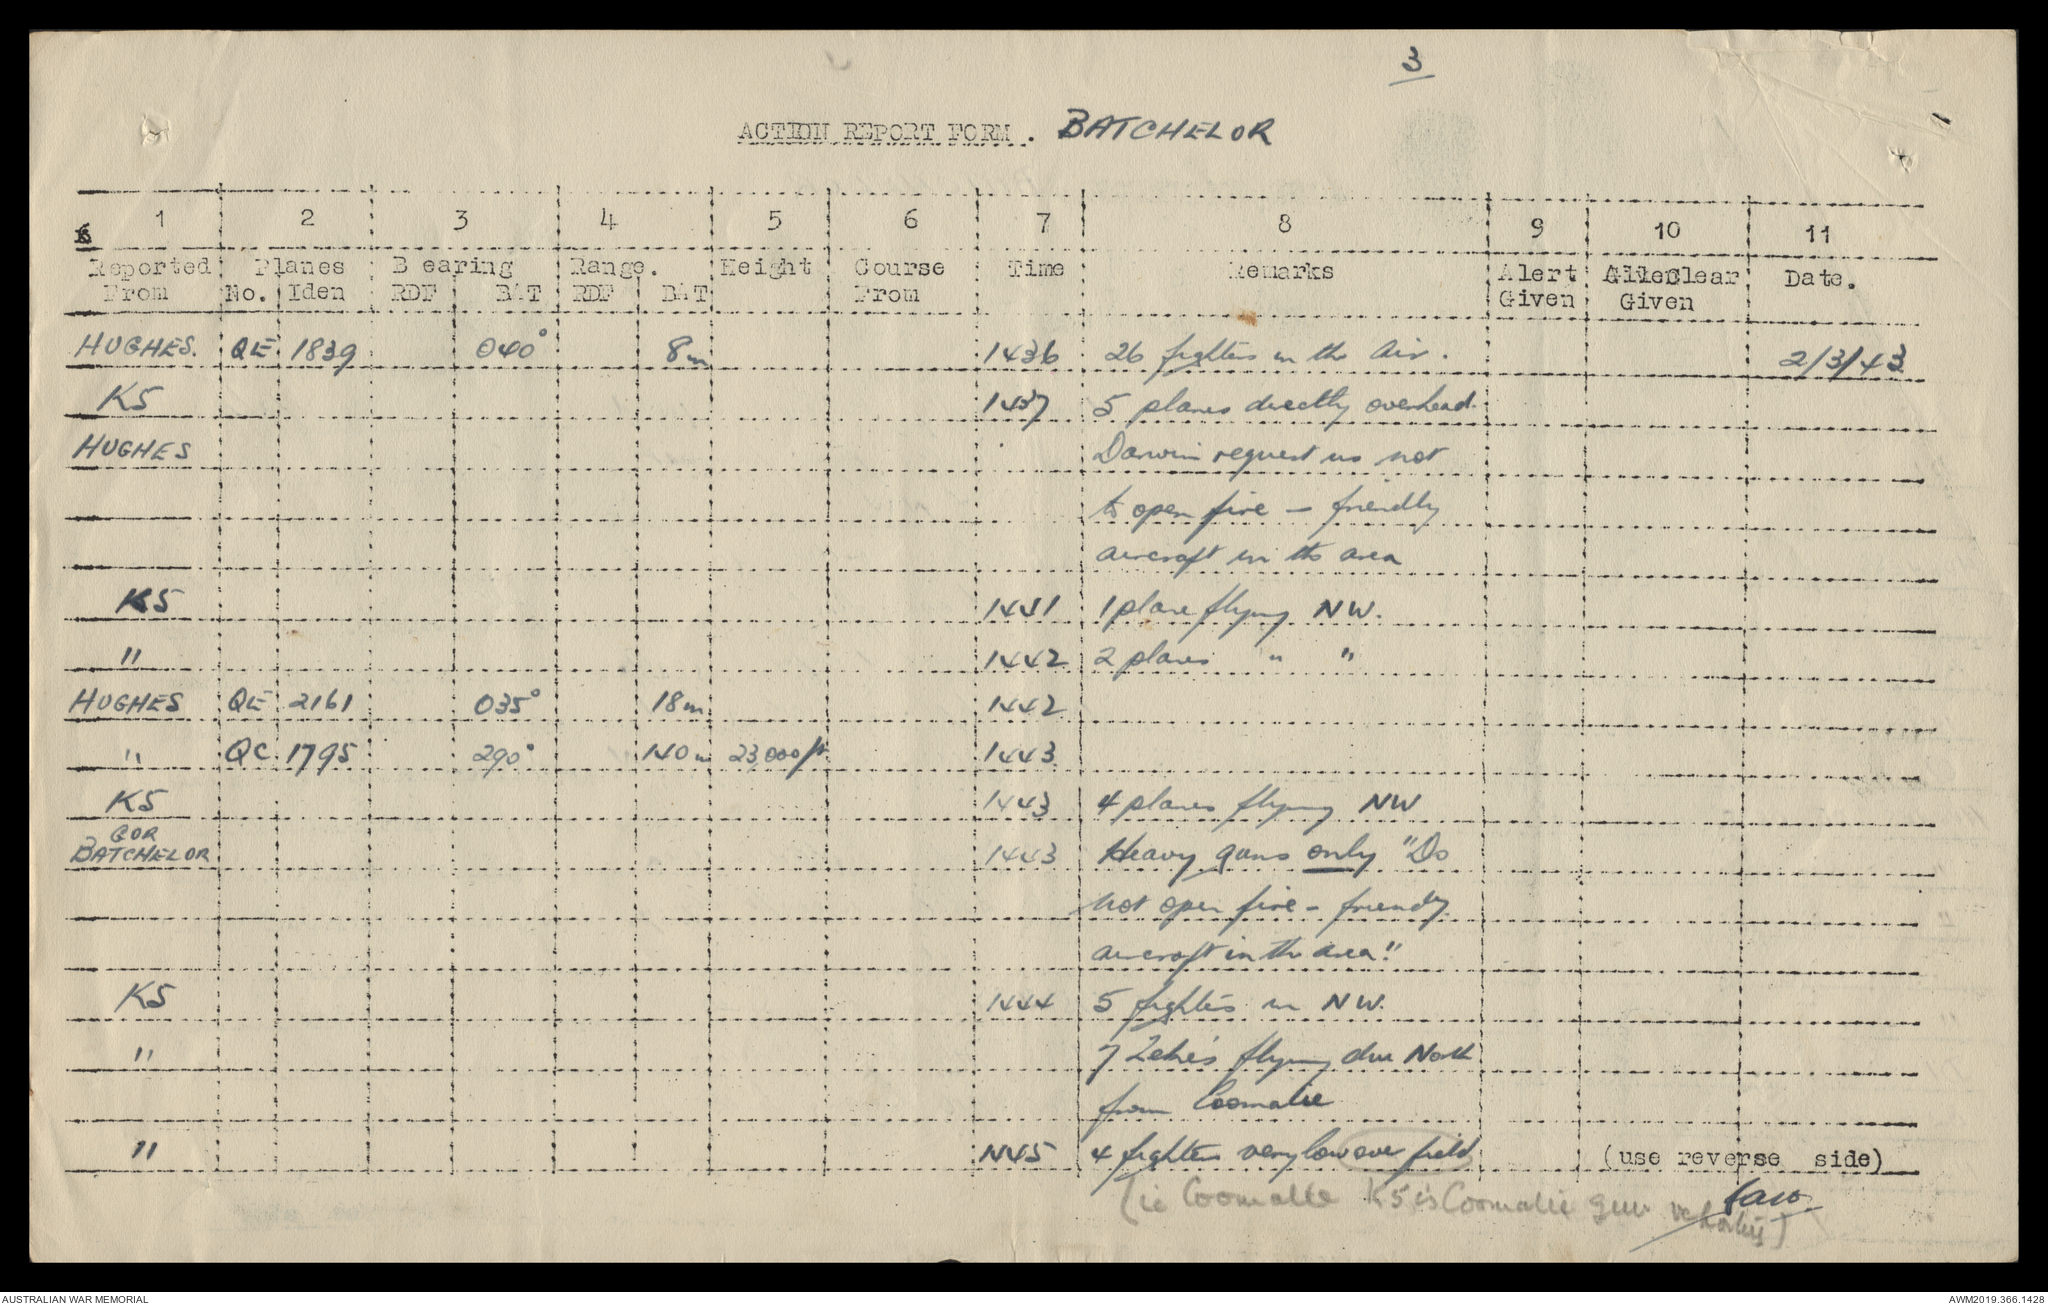 3
ACTION REPORT FORM. BATCHELOR
1 2 3 4 5 6 7 8 9 10 11
Reported Planes Bearing Range. Height Course Time Remarks Alert All Clear Date.
From No. Iden RDF BAT RDF BAT From Given Given
HUGHES. QE 1839 040° 8m 1436 26 fighters in the air. 2/3/43
K5 1437 5 planes directly overhead.
HUGHES Darwin request us not
to open fire - friendly
aircraft in the area
K5 1441 1 plane flying NW.
" 1442 2 planes " "
HUGHES QE 2161 035° 18m 1442
" QC 1795 290° 140m 23,000ft 1443
K5 1443 4 planes flying NW
GOR
BATCHELOR 1443 Heavy guns only "Do
not open fire - friendly
aircraft in the area."
K5 1444 5 fighters in NW.
" 7 Zeke's flying due North
from Coomalie
" 1445 4 fighters very low over field (use reverse side)
(ie Coomalie K5 is Coomalie gun
AUSTRALIAN WAR MEMORIAL AWM2019.366.1428